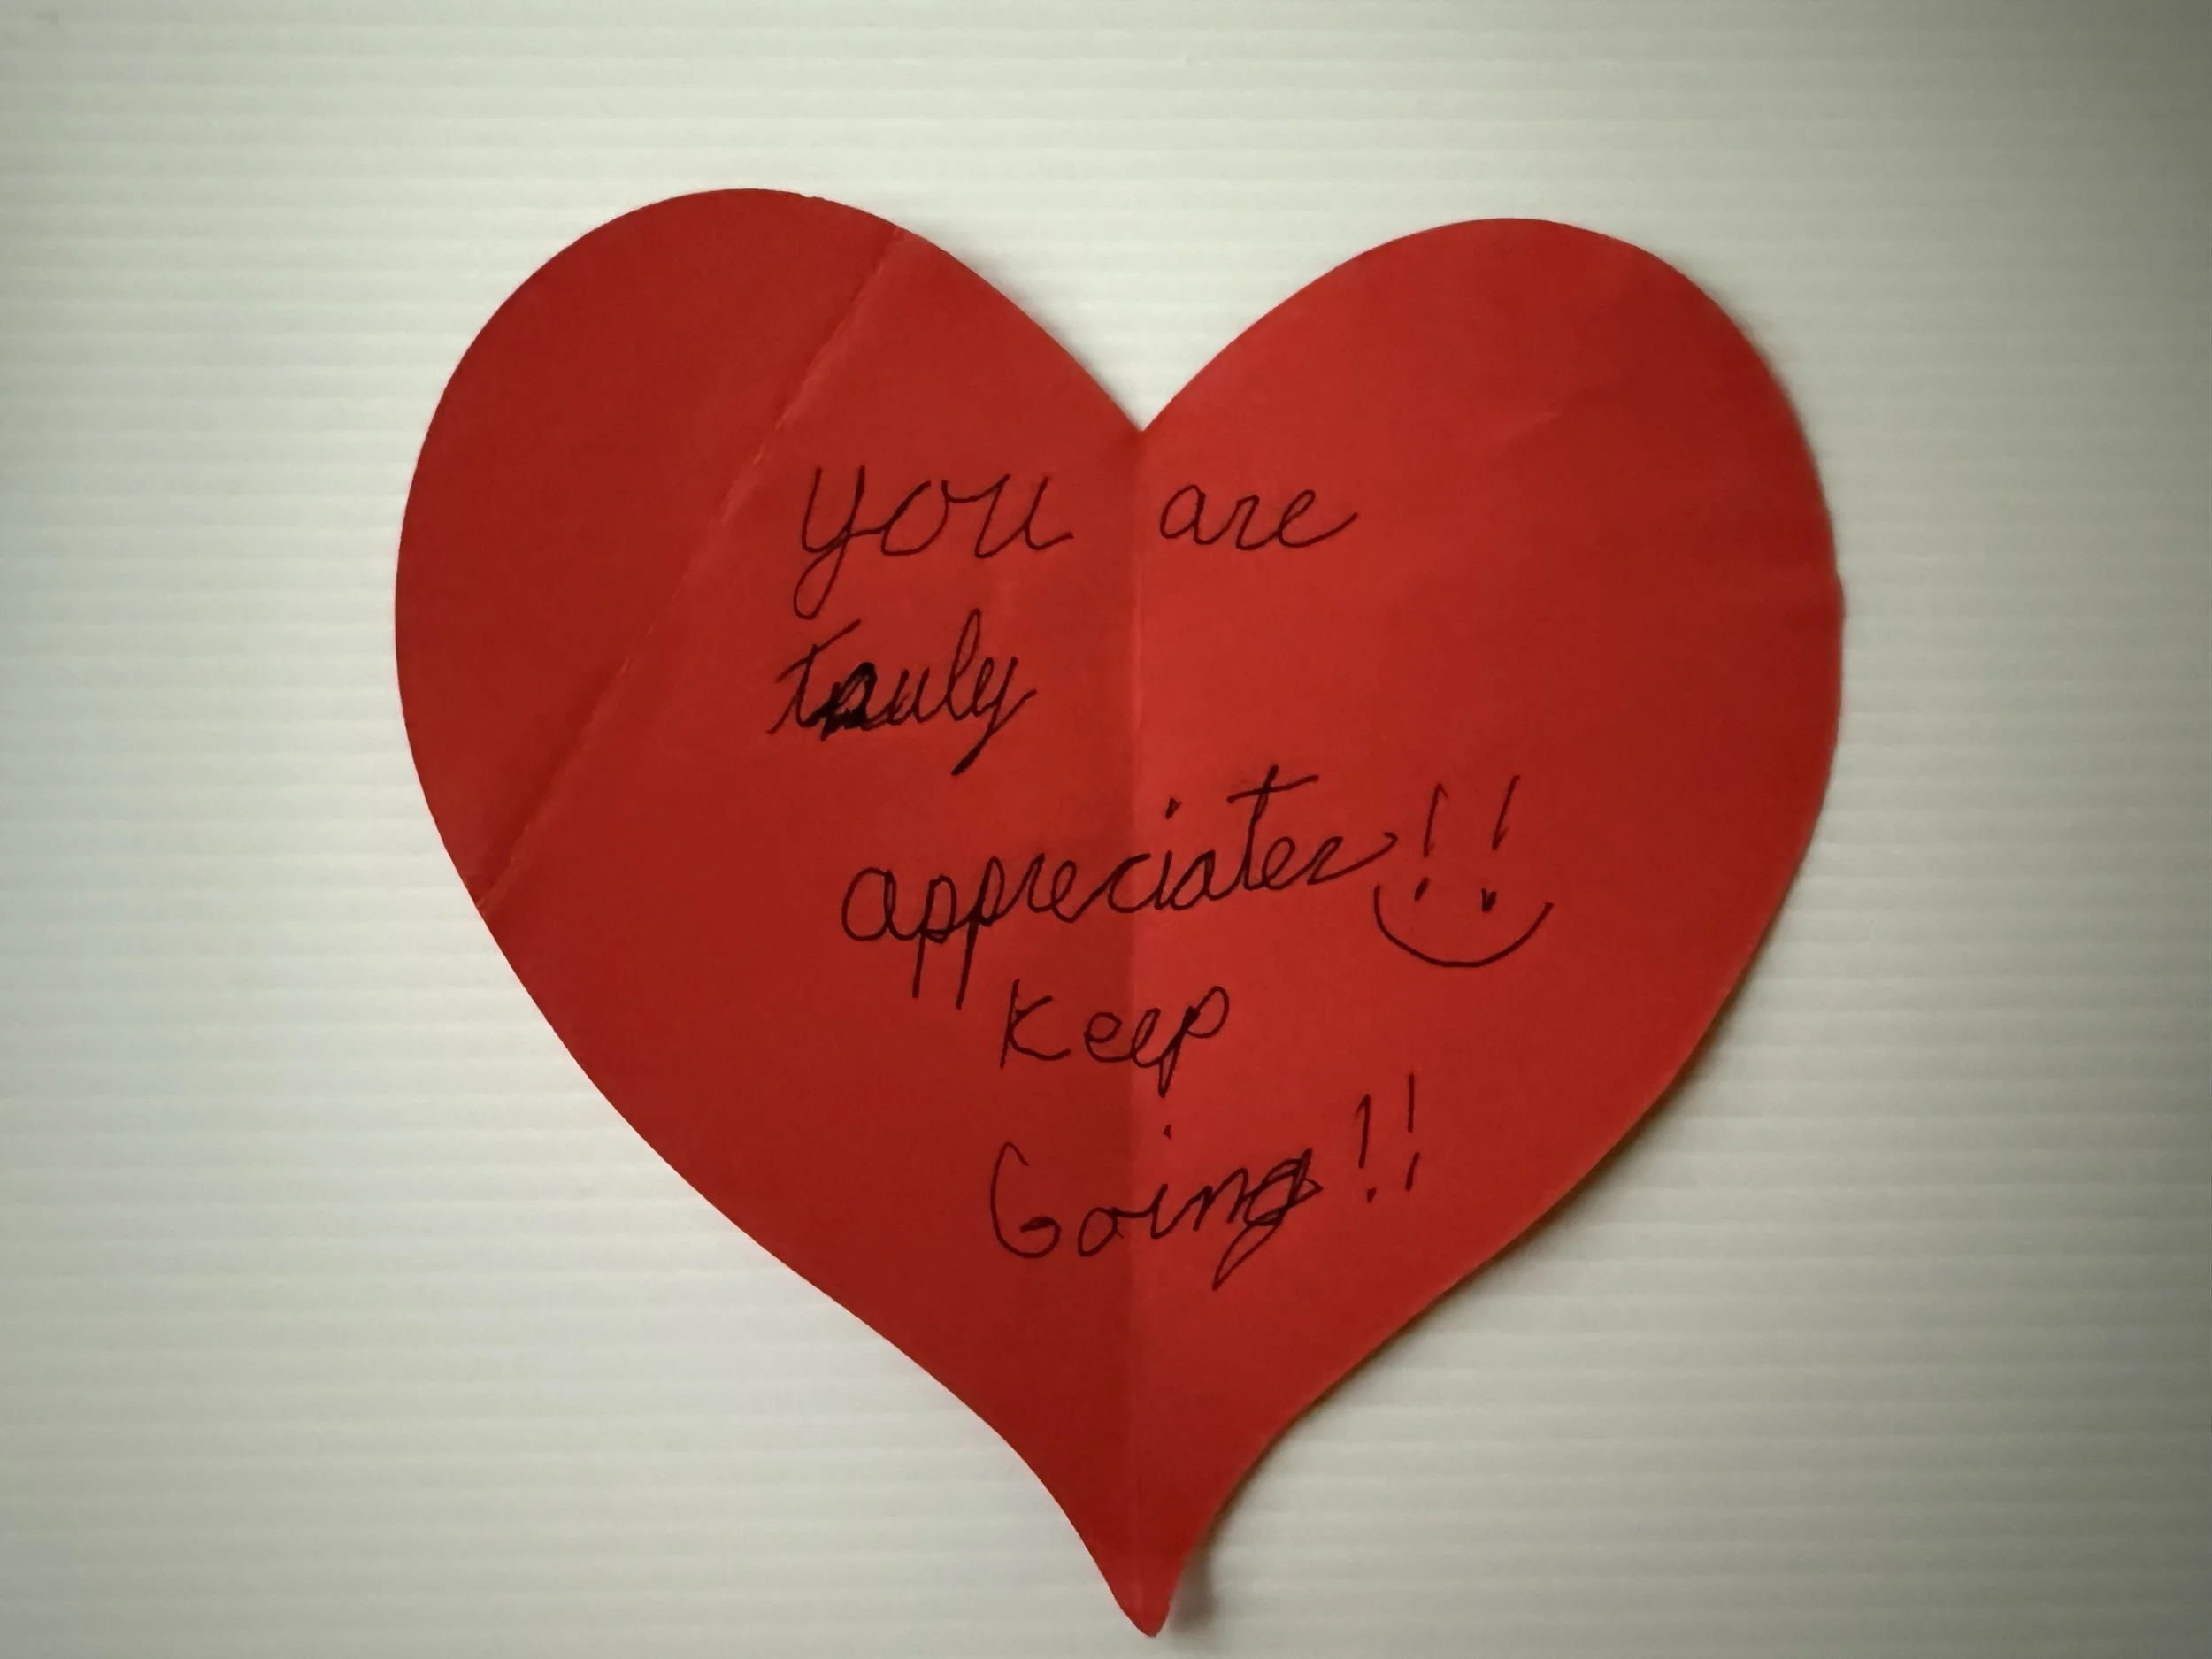 you are
truly
appreciater!!
Keep
Going!!